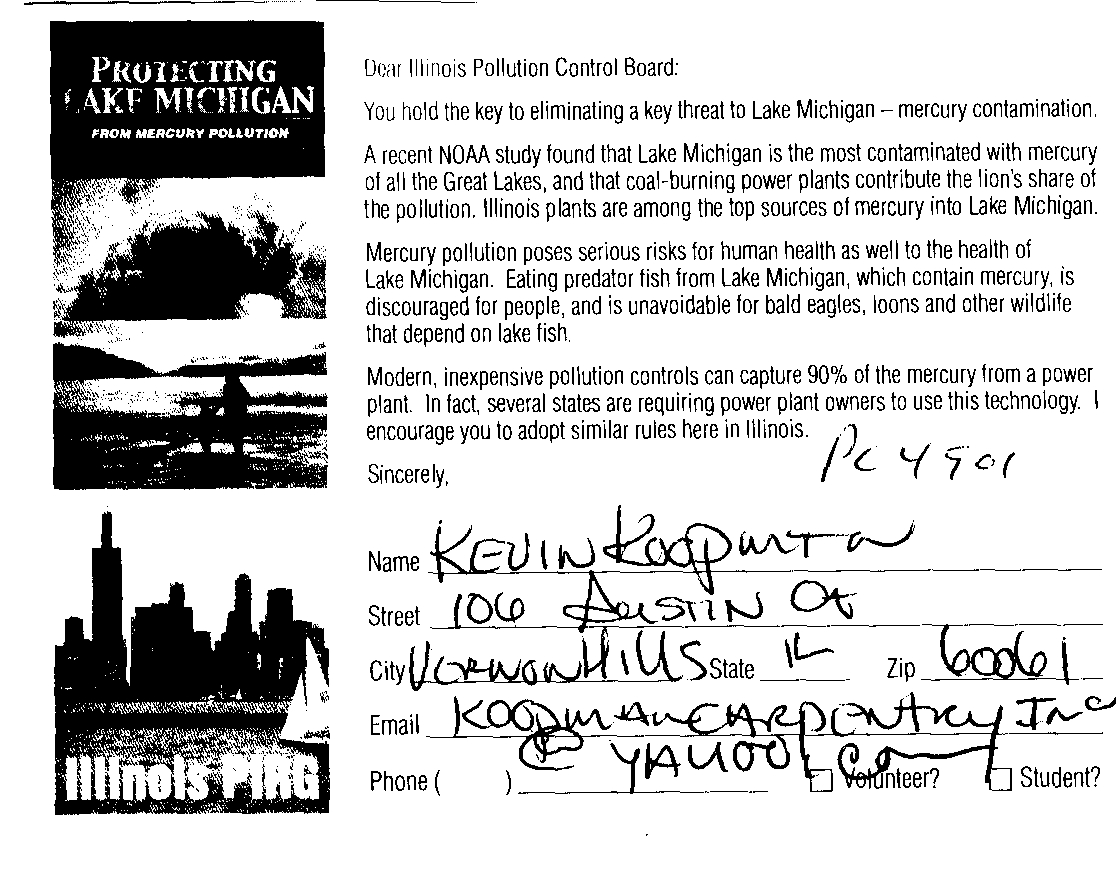 PROTECTING
LAKE MICHIGAN
FROM MERCURY POLLUTION
Illinois PIRG
Dear Illinois Pollution Control Board:
You hold the key to eliminating a key threat to Lake Michigan – mercury contamination.
A recent NOAA study found that Lake Michigan is the most contaminated with mercury
of all the Great Lakes, and that coal-burning power plants contribute the lion's share of
the pollution. Illinois plants are among the top sources of mercury into Lake Michigan.
Mercury pollution poses serious risks for human health as well to the health of
Lake Michigan. Eating predator fish from Lake Michigan, which contain mercury, is
discouraged for people, and is unavoidable for bald eagles, loons and other wildlife
that depend on lake fish.
Modern, inexpensive pollution controls can capture 90% of the mercury from a power
plant. In fact, several states are requiring power plant owners to use this technology. I
encourage you to adopt similar rules here in Illinois.
PC 4901
Sincerely,
Name KEVIN
Street 106 AUSTIN Ct
City VERNON HILLS State IL Zip 60061
Email KOOPMANCARPENTRYINC
@ YAHOO.COM
Phone ( ) Volunteer? Student?